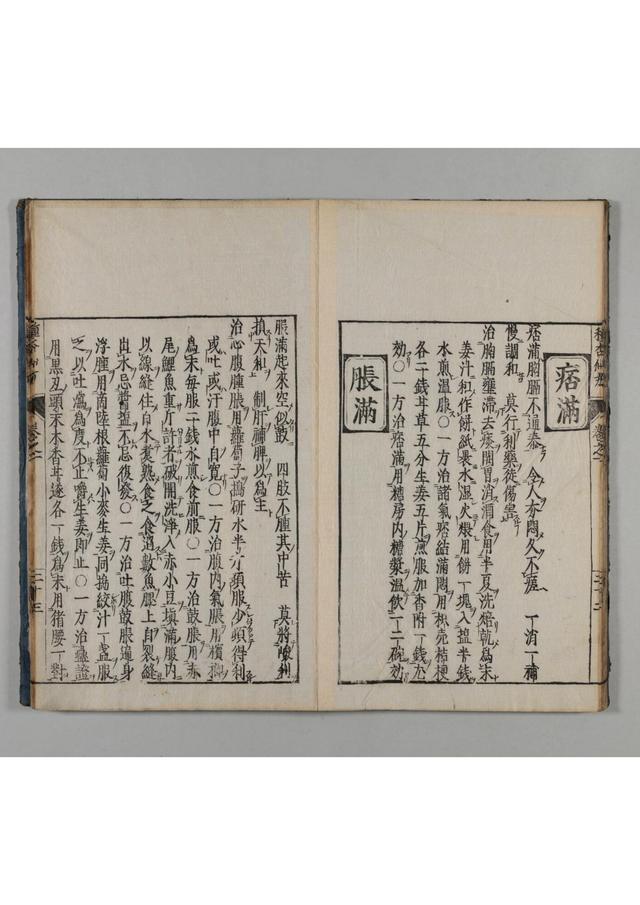 種杏仙方 卷之一 二十二
痞滿
痞滿胸膈不通泰 令人夯悶久不癒 丁消丁補
慢調和 莫行利藥徒傷噐
治胸膈壅滯去痰開胃消消食用半夏洗焙軋為末
姜汁和作餅紙裹水湿火煨用餅一塊入塩半錢
水煎温服〇一方治諸氣痞結滿悶用枳壳桔梗
各二錢甘草五分生姜五片煎服加香附一錢尤
効〇一方治痞滿用糟房内糟漿温飲一二碗効
脹滿
脹滿起來空似鼓 四肢不腫其中苦 莫將峻利
損天和 制肝補脾以為主
治心腹腫脹用蘿蔔子搗研水半介頻服少頃得利
或吐或汗腹中自寛〇一方治腹内氣脹用檳榔
為末每服二錢水煎食前服〇一方治鼓脹用赤
尾鯉魚重一斤許者破開洗淨入赤小豆填滿腹内
以線縫住白水煮熟食之食過數魚腿上自裂縫
出水忌醬塩不忌復發〇一方治吐腹鼓脹遍身
浮腫用商陸根蘿蔔小麥生姜同搗絞汁一盞服
之以吐瀉為度不止嚼生姜即止〇一方治蠱證
用黑丑頭末木香甘遂各一錢為末用猪腰一對
種杏仙方 卷之一 二十三